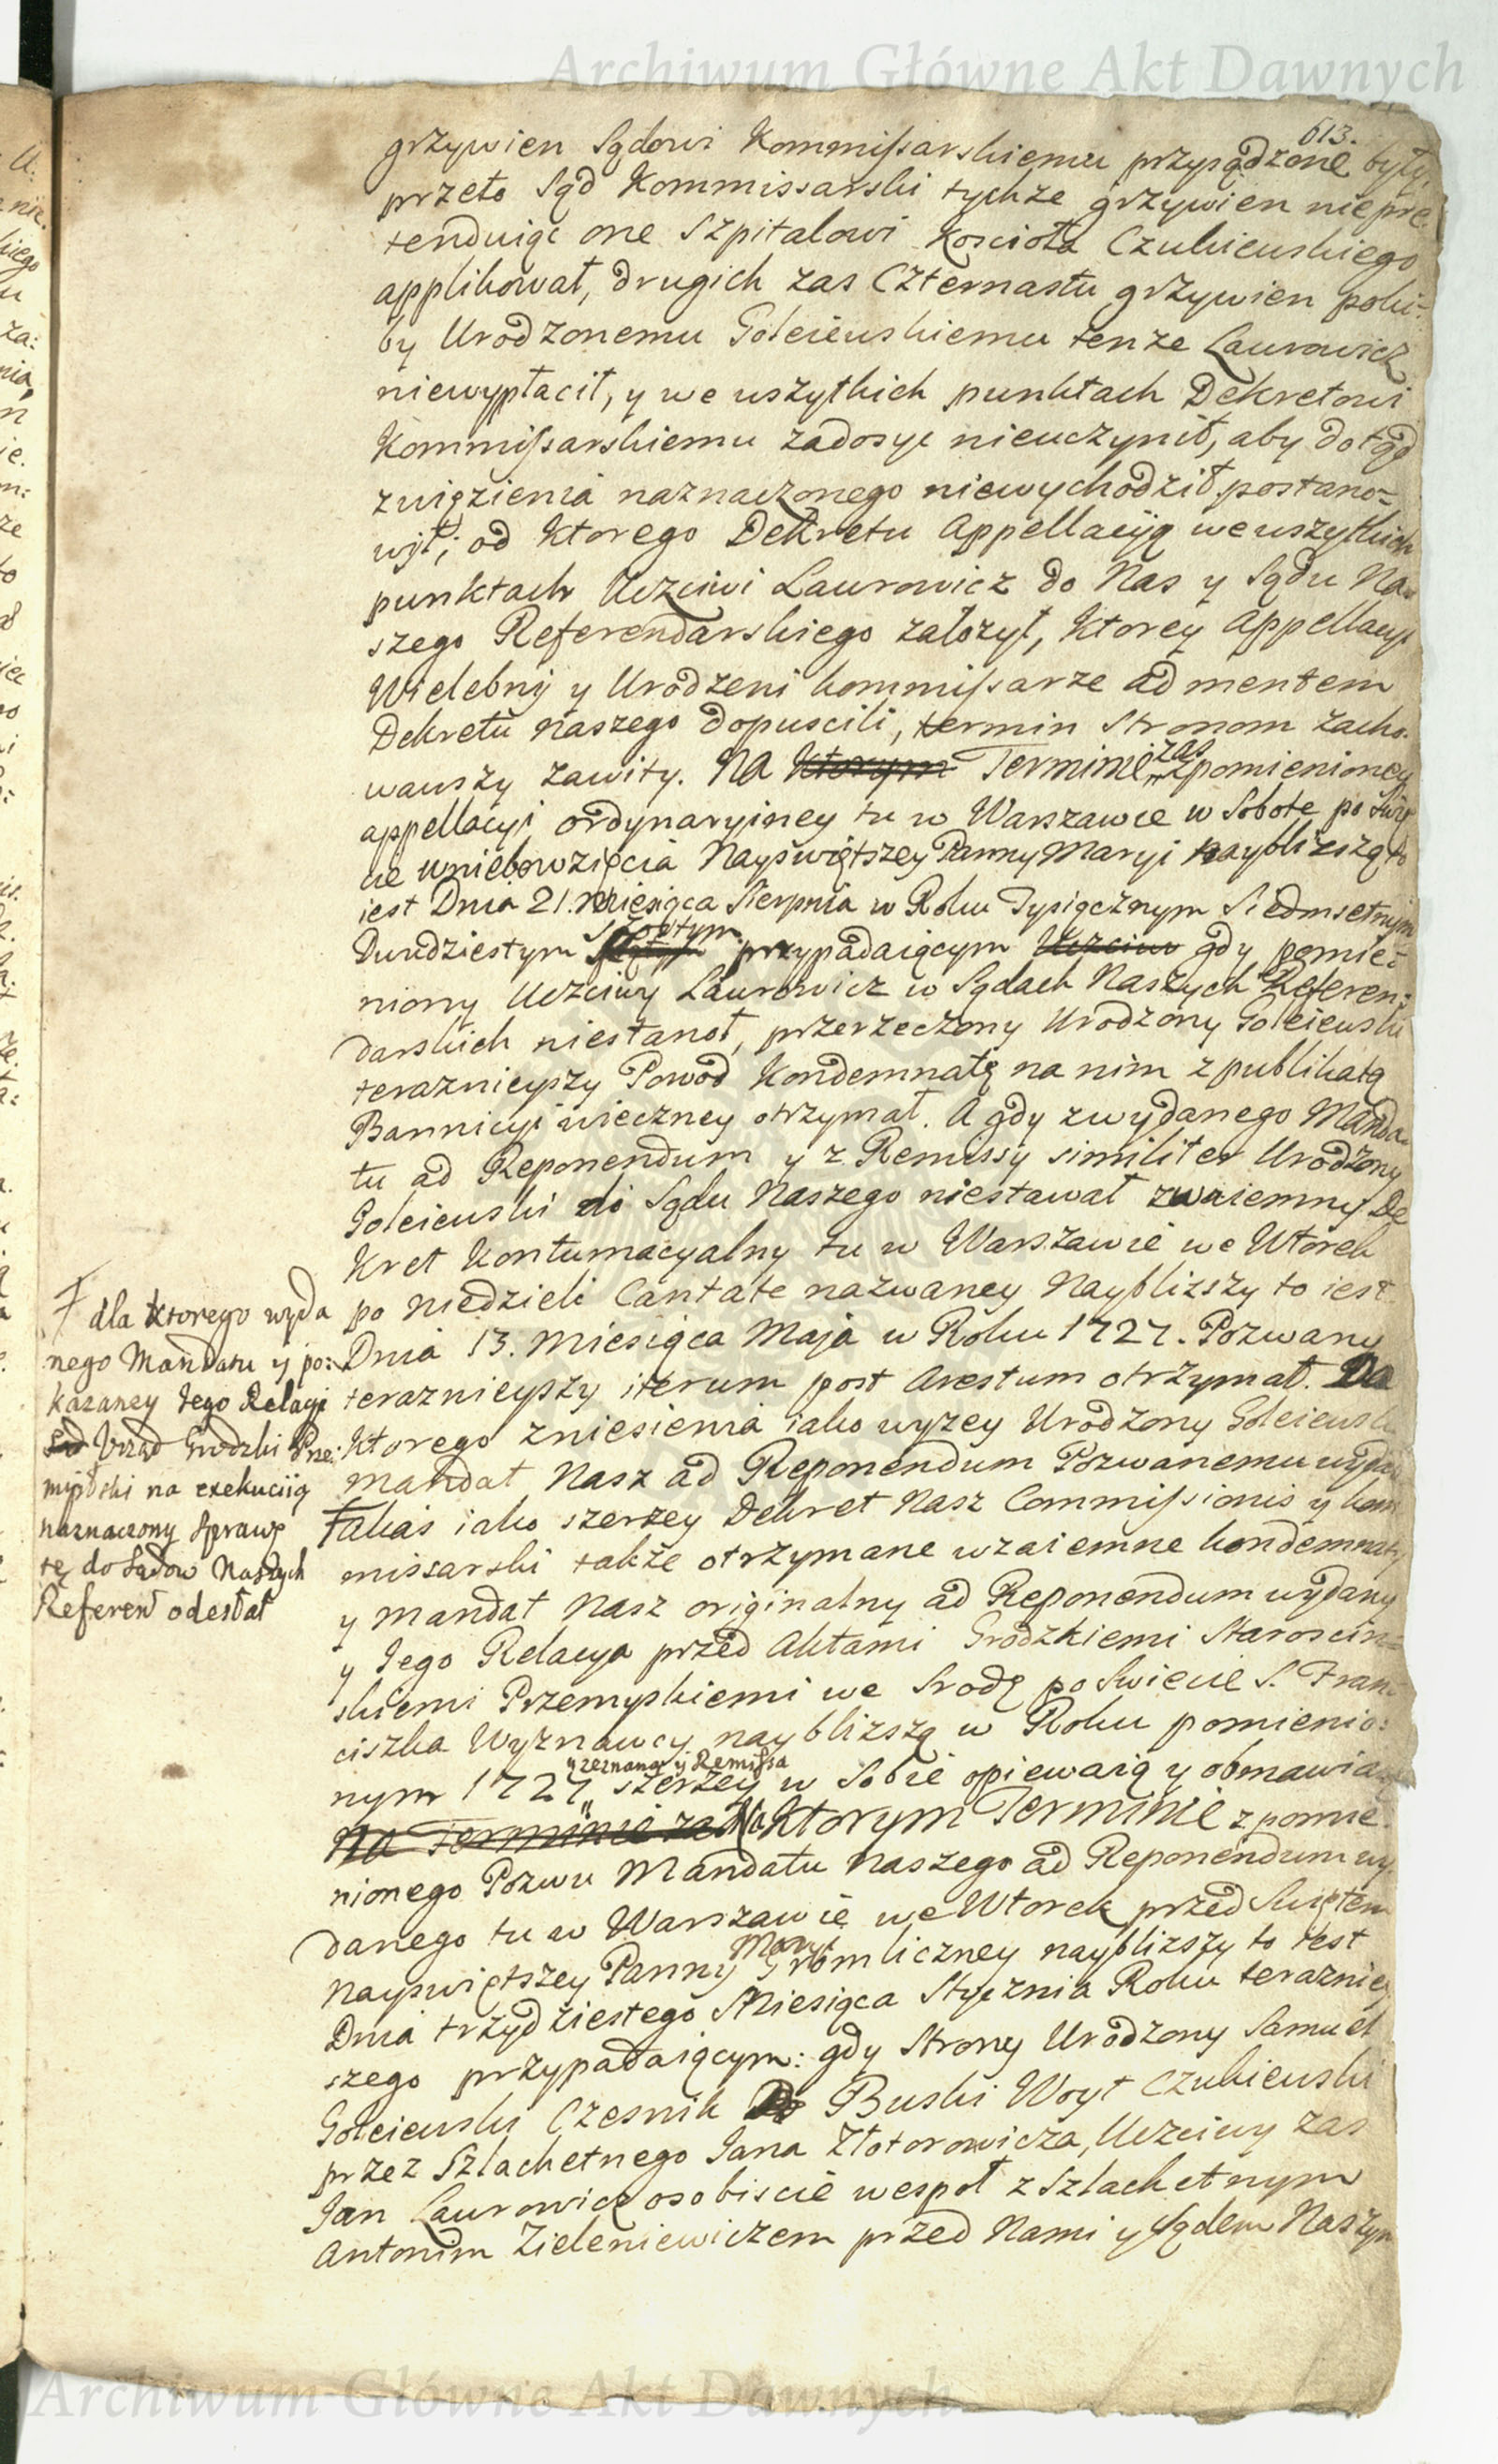 Archiwum Główne Akt Dawnych
613.
grzywien Sądowi Kommissarskiemu przysądzone były,
przeto Sąd Kommissarski tychże grzywien niepre-
tenduiąc one Szpitalowi Koscioła Czukiewskiego
applikował, drugich zas Czternastu grzywien poki-
by Urodzonemu Golciewskiemu tenze Laurowicz
niewypłacił, y we wszytkich punktach Dekretowi
Kommissarskiemu zadosyc nieuczynił, aby dotąd
zwięzienia naznaczonego niewychodził postano=
wił; od Ktorego Dekretu Appellacyją we wszytkich
punktach Uczciwi Laurowicz do Nas y Sądu Na-
szego Referendarskiego załozył, Ktorey Appellacyi
Wielebny y Urodzeni kommissarze ad mentem
Dekretu naszego dopuscili, termin Stronom zacho-
wawszy zawity. Na Ktorym Terminie zas zpomienioney
appellacyi ordynaryiney tu w Warszawie w Sobotę po Swię
cie wniebowzięcia Nayświętszey Panny Maryi naybliższą to
iest Dnia 21. Miesiąca Sierpnia w Roku Tysiącznym Siedmsetnym
Dwudziestym szostym przypadaiącym Uczciw gdy pomie-
niony Uczciwy Laurowicz w Sądach Naszych Referen-
darskich niestanoł, przerzeczony Urodzony Golciewski
teraznieyszy Powod Kondemnatę na nim z publikatą
Bannicyi wieczney otrzymał. A gdy zwydanego Manda-
tu ad Reponendum y z Remissy similiter Urodzony
Golciewski do Sądu Naszego niestawał zwaiemny De
Kret Kontumacyalny tu w Warszawie we Wtorek
po niedzieli Cantate nazwaney Naybliższy to iest
Dnia 13. Miesiąca Maja w Roku 1727. Pozwany
teraznieyszy iterum post Arestum otrzymał. Do
Ktorego zniesienia iako wyzey Urodzony Golciewski
mandat Nasz ad Reponendum Pozwanemu wydał
Ŧ dla ktorego wyda
nego Mandatu y po:
kazaney Jego Relacyi
Sąd Vrząd Grodzki Prze:
myślski na exekucyią
naznaczony Sprawę
tę do Sądow Naszych
Referen odesłał
Ŧakas iako szerzey Dekret Nasz Commissionis y kom
missarski także otrzymane wzaiemne kondemnaty
y mandat Nasz originalny ad Reponendum wydany
y Jego Relacya przed Aktami Grodzkiemi Staroscin=
skiemi Przemyskiemi we Srodę po Swiecie S. Fran
ciszka Wyznawcy naybliższą w Roku pomienio:
nym 1727 zeznana y Remissa szerzey w Sobie opiewaią y obmawiaią
Na Terminie zas Na Ktorym Terminie z pomie
nionego Pozwu Mandatu Naszego ad Reponendum wy-
danego tu w Warszawie we Wtorek przed Swiętem
Nayswiętszey Panny Maryi Gromliczney naybliższy to iest
Dnia trzydziestego Miesiąca Stycznia Roku teraznie
szego przypadaiącym: gdy Strony Urodzony Samuel
Golciewski Czesnik Buski Woyt Czukiewski
przez Szlachetnego Jana Złotorowicza, Uczciwy zas
Jan Laurowicz osobiscie wespoł z Szlachetnym
Antonim Zieleniewiczem przed Nami y Sądem Naszym
Archiwum Główne Akt Dawnych